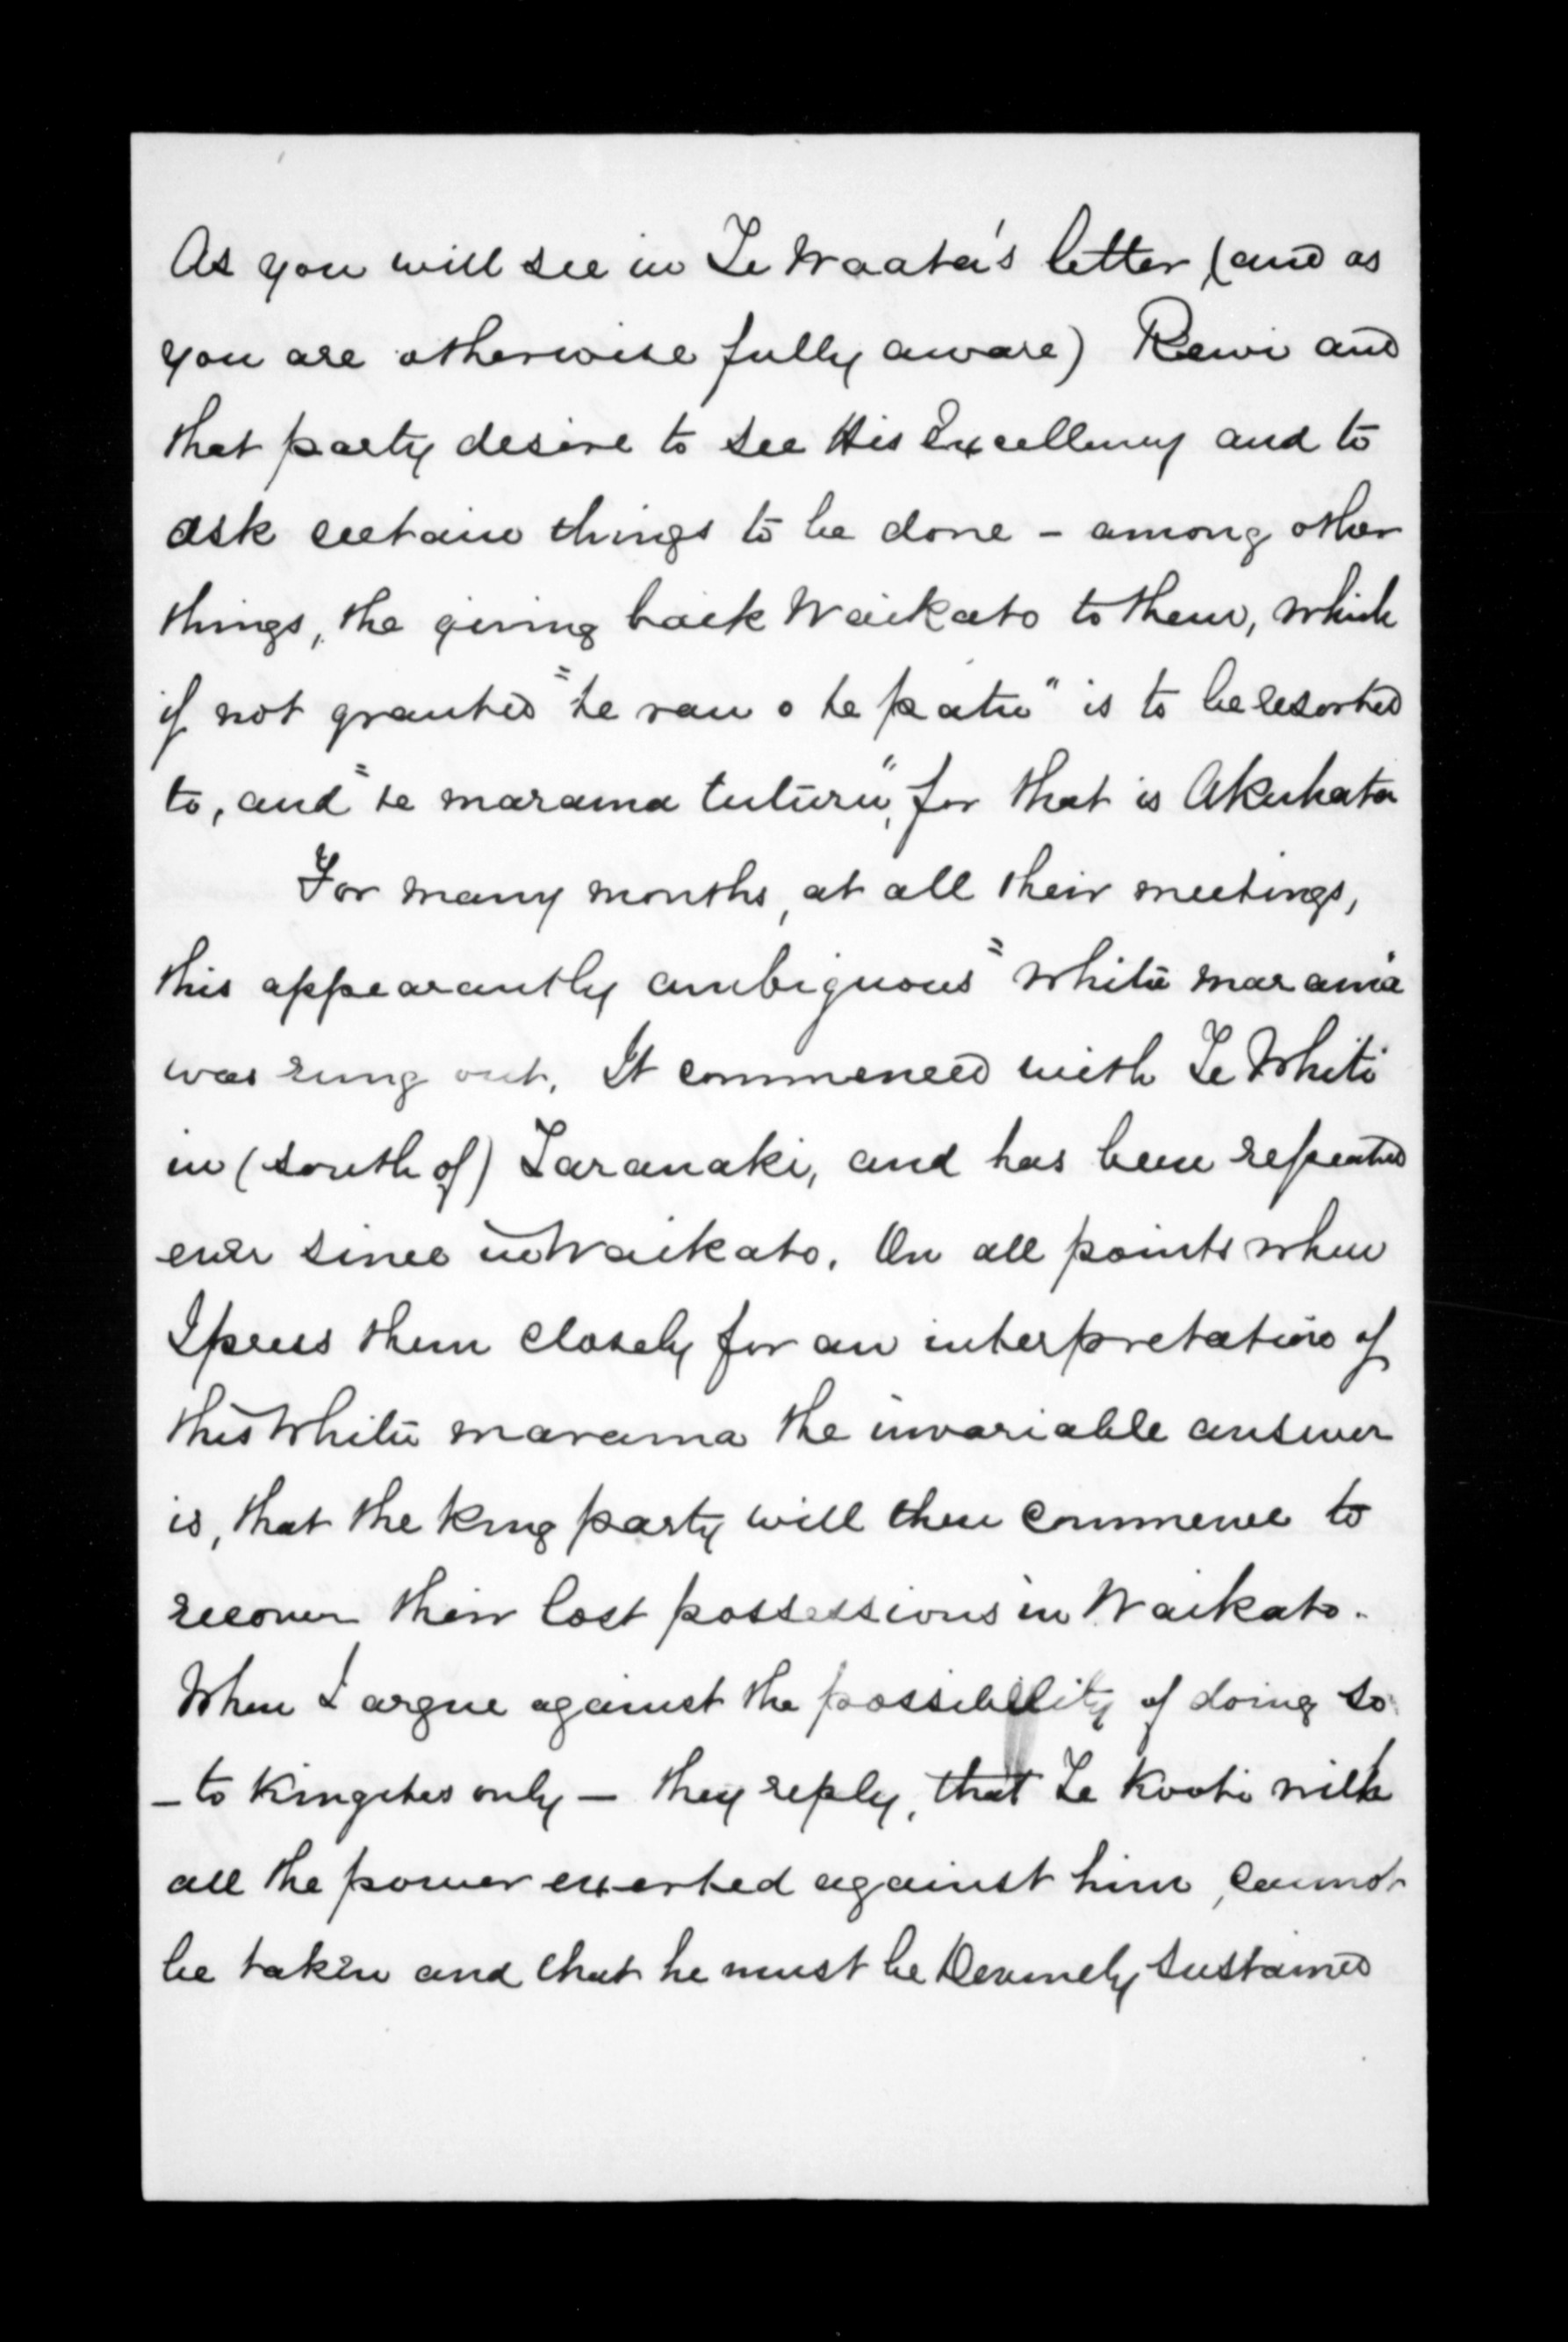 As you will see in Te Waata's letter (and as
you are otherwise fully aware) Rewi and
that party desire to see His Excellency and to
ask certain things to be done - among other
things, the giving back Waikato to them, which
if not granted "te rau o te patu" is to be resorted
to, and "te marama tuturu", for that is Akuhata
For many months, at all their meetings,
this appearantly ambiguous "whitu marama
was rung out. It commenced with Te Whiti
in (south of) Taranaki, and has been repeated
ever since in Waikato. On all points when
I press them closely for an interpretation of
this Whitu marama the invariable answer
is, that the King party will then commence to
recover their lost possessions in Waikato.
When I argue against the possibility of doing so
- to Kingites only - they reply, that Te Kooti with
all the power exerted against him, cannot
be taken and that he must be Devinely sustained